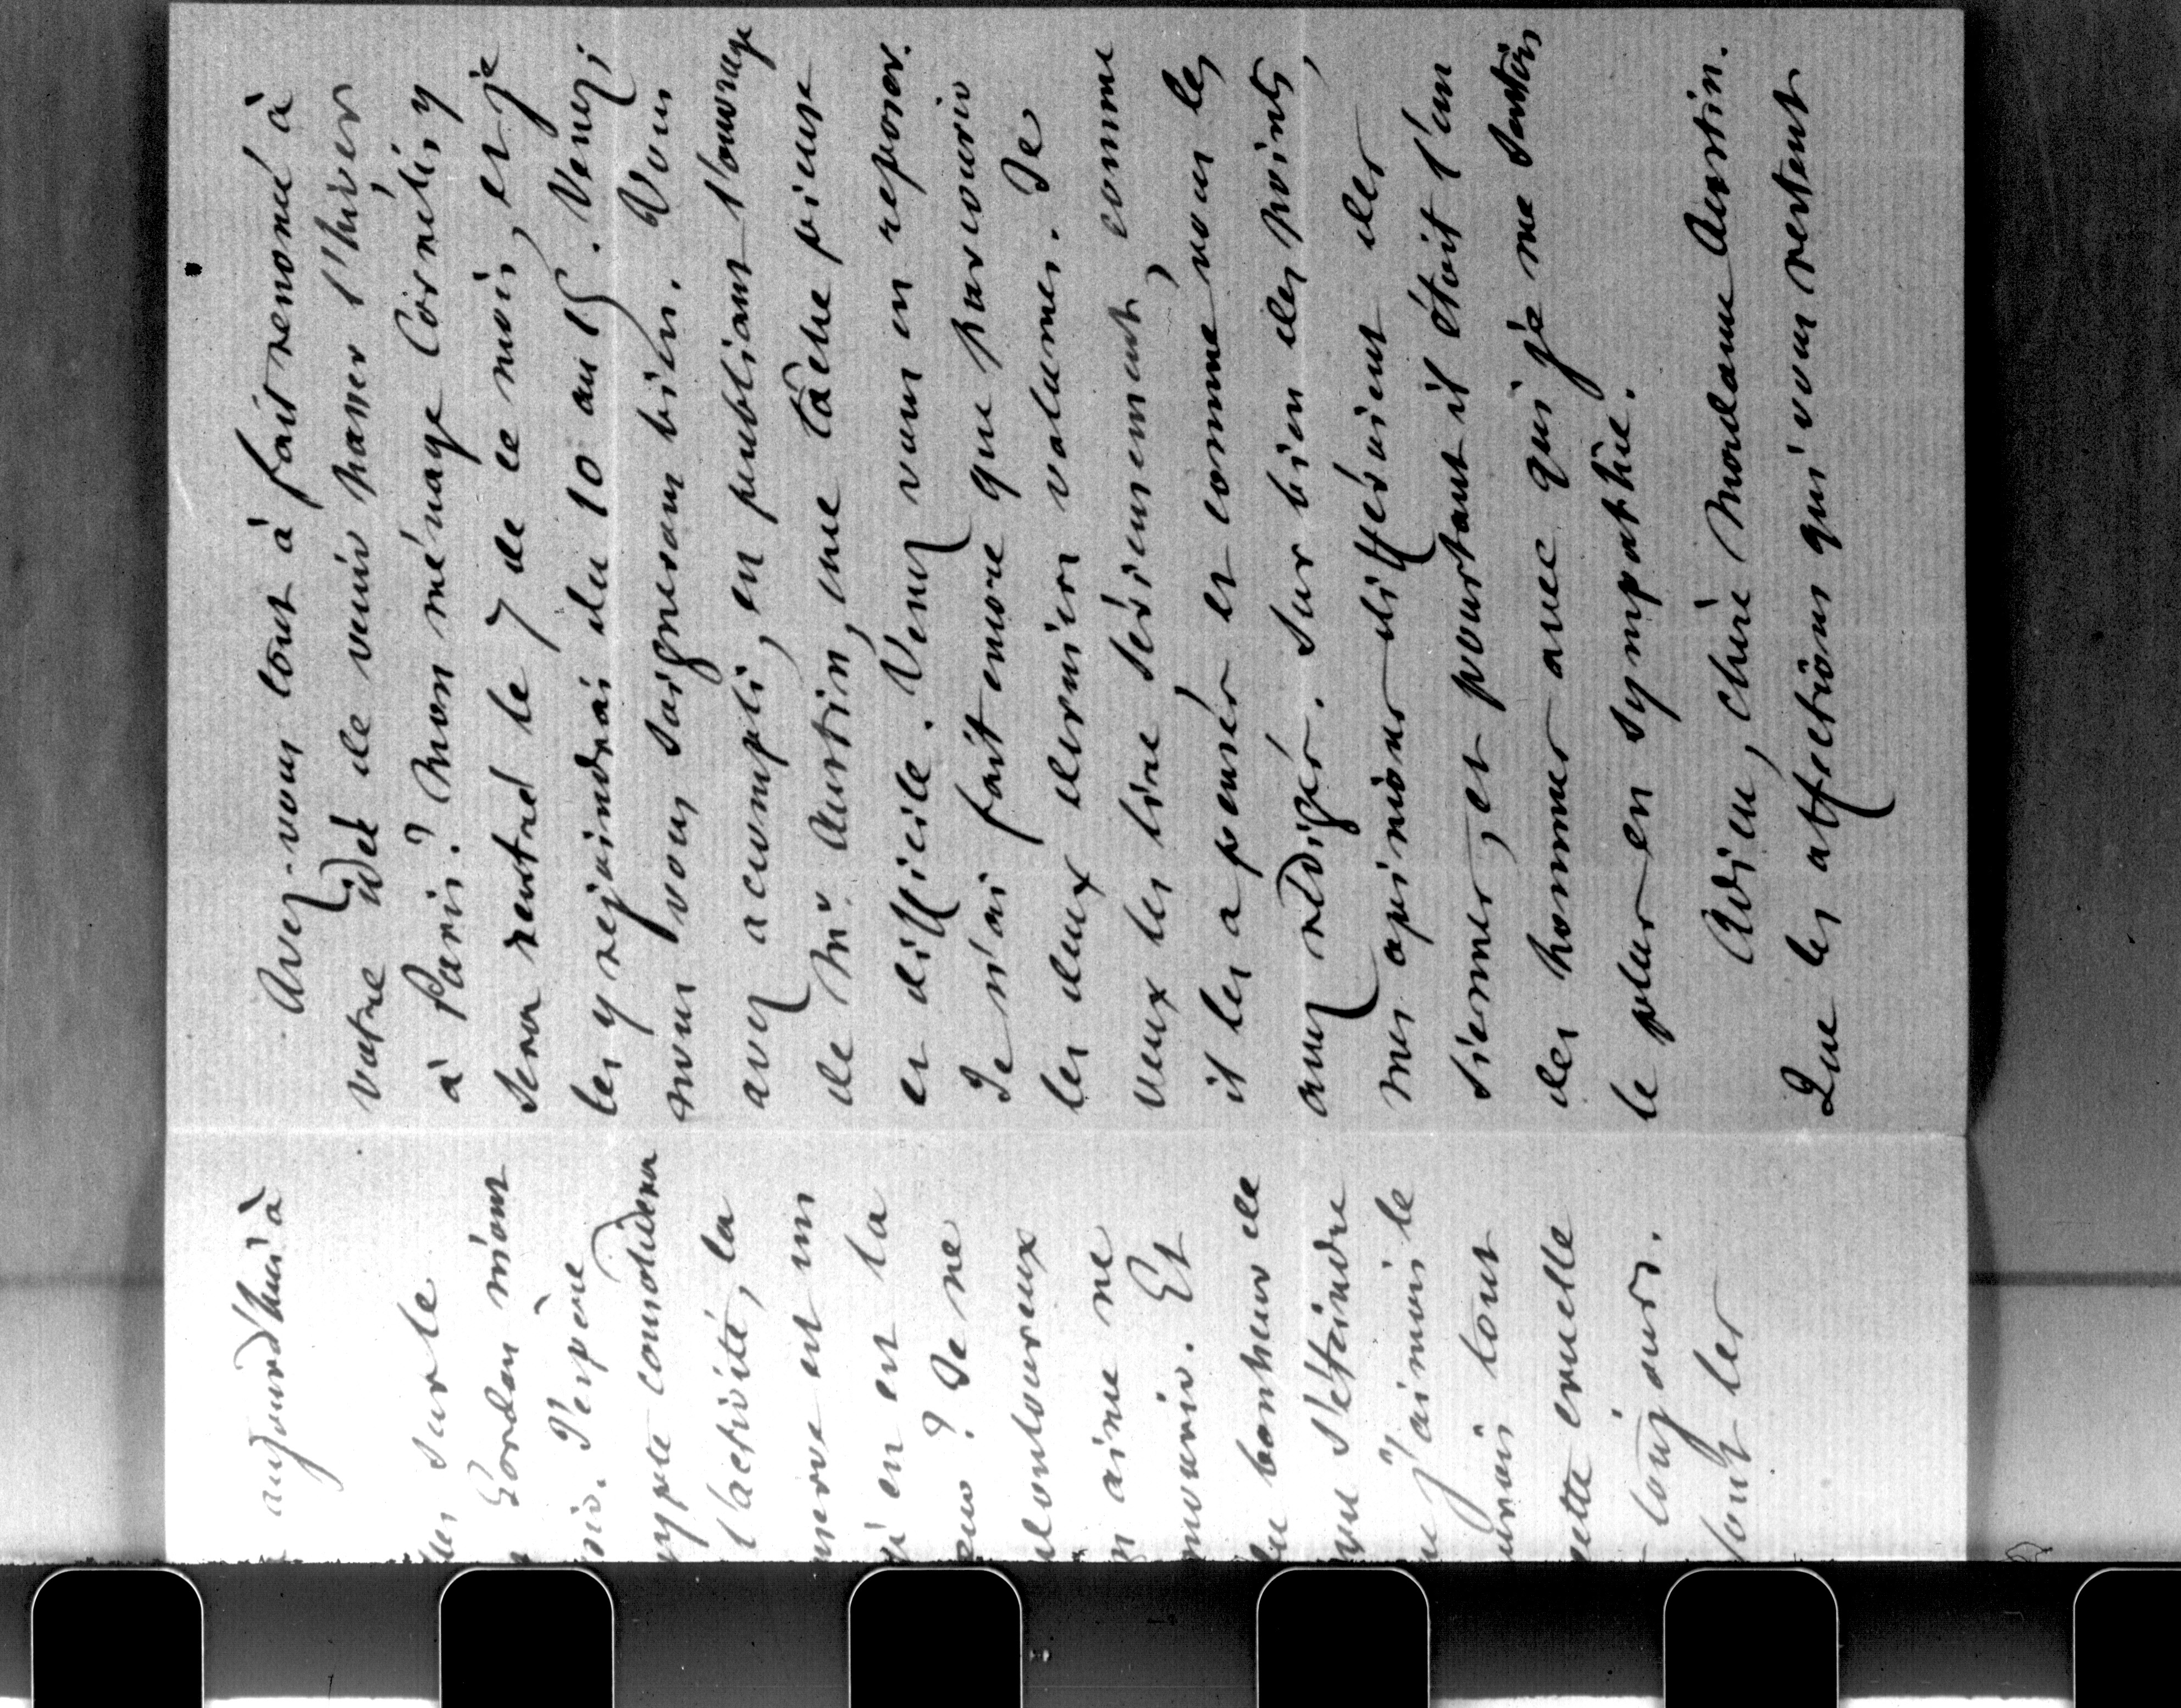 aujourd'hui à
sur le
Gordon m'ont
J'espère
consolidera
l'activité, la
est un
en est la
? Je ne
douloureux
aime ne
mourir. Et
bonheur de
s'éteindre
j'aimois le
tout
cette cruelle
toujours.
sont les
Avez-vous tout à fait renoncé à
votre idée de venir passer l'hiver
à Paris ? Mon ménage Cornélis y
sera rentré le 7 de ce mois, et je
les y rejoindrai du 10 au 15. Venez ;
nous vous soignerons bien. Vous
avez accompli, en publiant l'ouvrage
de Mr. Austin, une tâche pieuse
et difficile. Venez vous en reposer.
Je n'ai fait encore que parcourir
les deux derniers volumes. Je
veux les lire sérieusement, comme
il les a pensés et comme vous les
avez rédigés. Sur bien des points,
mes opinions différoient des
siennes, et pourtant il étoit l'un
des hommes avec qui je me sentois
le plus en sympathie.
Adieu, chère Madame Austin.
Que les affections qui vous restent